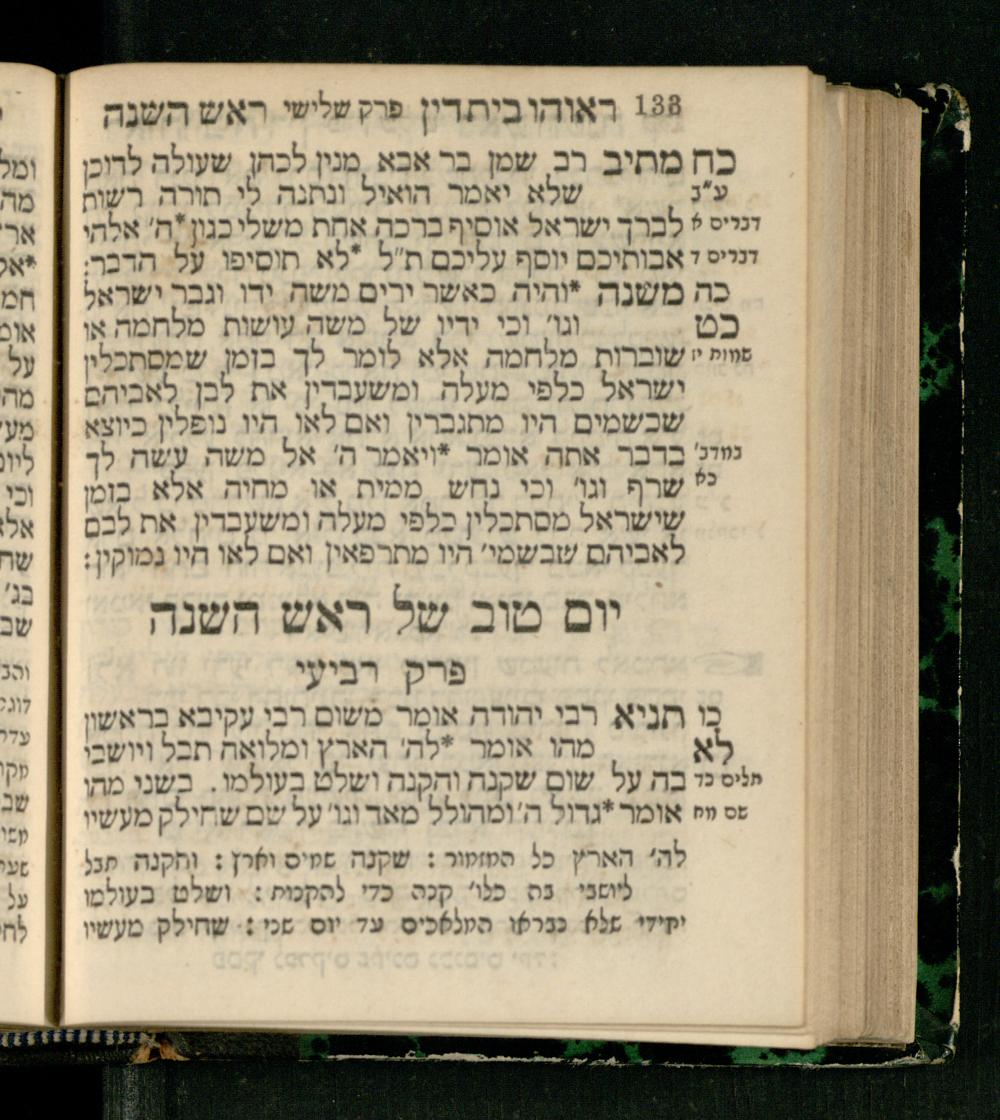 138 ראוהו ביתדין פרק שלישי ראש השנה
כח מתיב רב שמן בר אבא מנין לכהן שעולה לדוכן
ע״ב שלא יאמר הואיל ונתנה לי תורה רשות
דברים א לברך ישראל אוסיף ברכה אחת משלי כגון *ה׳ אלהי
דברים ד אבותיכם יוסף עליכם ת״ל *לא תוסיפו על הדבר:
כה משנה *והיה כאשר ירים משה ידו וגבר ישראל
כט וגו׳ וכי ידיו של משה עושות מלחמה או
שמות יז שוברות מלחמה אלא לומר לך בזמן שמסתכלין
ישראל כלפי מעלה ומשעבדין את לבן לאביהם
שבשמים היו מתגברין ואם לאו היו נופלין כיוצא
במדב׳ בדבר אתה אומר *ויאמר ה׳ אל משה עשה לך
כא שרף וגו׳ וכי נחש ממית או מחיה אלא בזמן
שישראל מסתכלין כלפי מעלה ומשעבדין את לבם
לאביהם שבשמי׳ היו מתרפאין ואם לאו היו נמוקין:
יום טוב של ראש השנה
פרק רביעי
כו תניא רבי יהודה אומר משום רבי עקיבא בראשון
לא מהו אומר *לה׳ הארץ ומלואה תבל ויושבי
תלים כד בה על שום שקנה והקנה ושלט בעולמו. בשני מהו
שם מח אומר *גדול ה׳ ומהולל מאד וגו׳ על שם שחילק מעשיו
לה׳ הארץ כל המזמור: שקנה שמים וארץ: והקנה תבל
ליושבי בה כלו׳ קנה כדי להקנות: ושלט בעולמו
יחידי שלא נבראו המלאכים עד יום שני: שחילק מעשיו